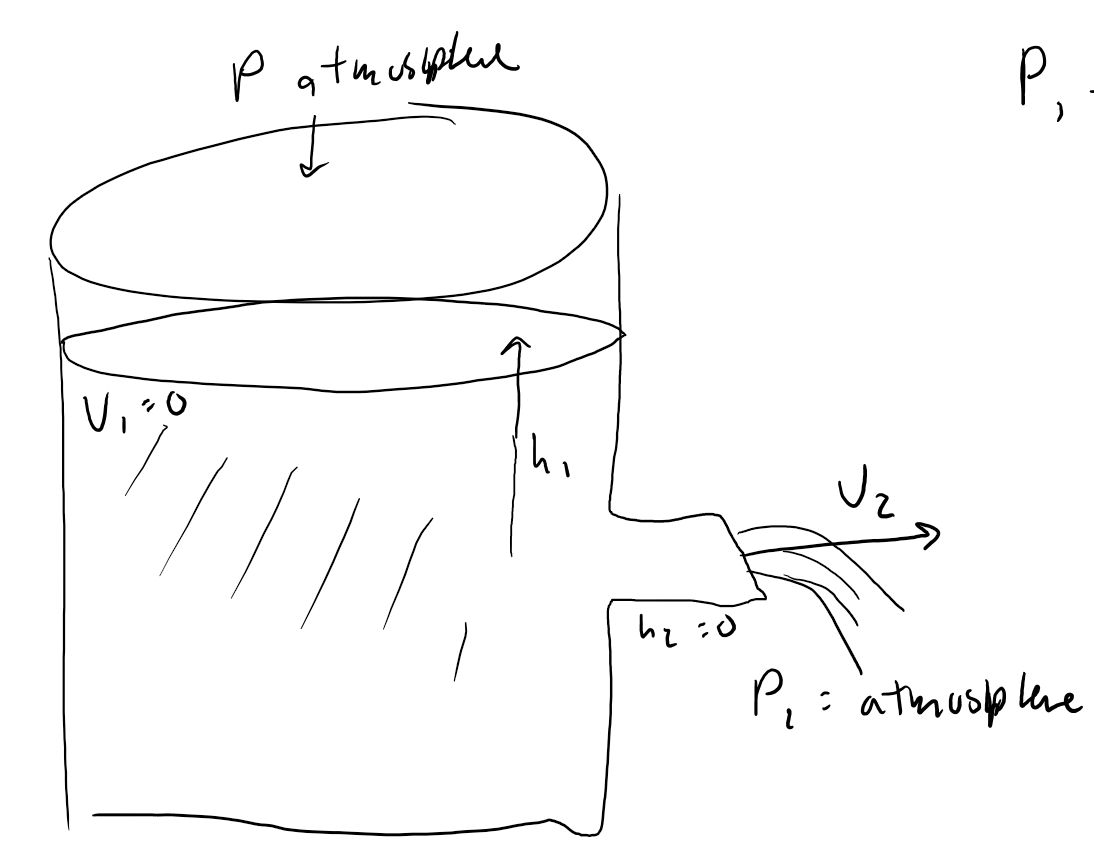 P atmosphere
P₁
V₁ = 0
h₁
V₂
h₂ = 0
P₂ = atmosphere